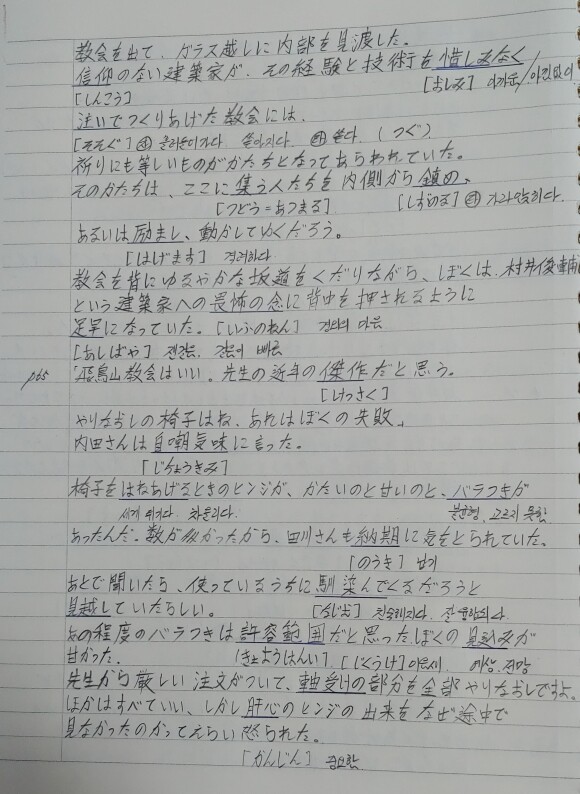 教会を出て、ガラス越しに内部を見渡した。
信仰のない建築家が、その経験と技術を惜しみなく
[しんこう] [おしみ] 아까운/아낌없이
注いでつくりあげた教会には、
[そそぐ] 쏟아지다. (つぐ)
祈りにも等しいものがかたちとなってあらわれていた。
そのかたちは、ここに集う人たちを内側から鎮め、
[つどう=あつまる] [しずめる] 가라앉히다.
あるいは励まし、動かしてゆくだろう。
[はげます] 격려하다
教会を背にゆるやかな坂道をくだりながら、ぼくは、村井俊輔
という建築家への畏怖の念に背中を押されるように
足早になっていた。[いふのねん] 경외의 마음
[あしばや] 잰걸음. 걸음이 빠름
p65 「飛鳥山教会はいい。先生の近年の傑作だと思う。
[けっさく]
やりなおしの椅子はね、あれはぼくの失敗」
内田さんは自嘲気味に言った。
[じちょうぎみ]
椅子をはねあげるときのヒンジが、かたいのと甘いのと、バラつきが
세게 튀기다. 차올리다. 불균형, 고르지 못함
あったんだ。数が多かったから、田川さんも納期に気をとられていた。
[のうき] 납기
あとで聞いたら、使っているうちに馴染んでくるだろうと
見越していたらしい。 [なじむ] 친숙해지다. 잘 융합되다
あの程度のバラつきは許容範囲だと思ったぼくの見込みが
甘かった。 [きょようはんい] 예상. 전망
先生から厳しい注文がついて、軸受けの部分を全部やりなおしですよ。
ほかはすべていい、しかし肝心のヒンジの出来をなぜ途中で
見なかったのかってえらい怒られた。
[かんじん] 중요함